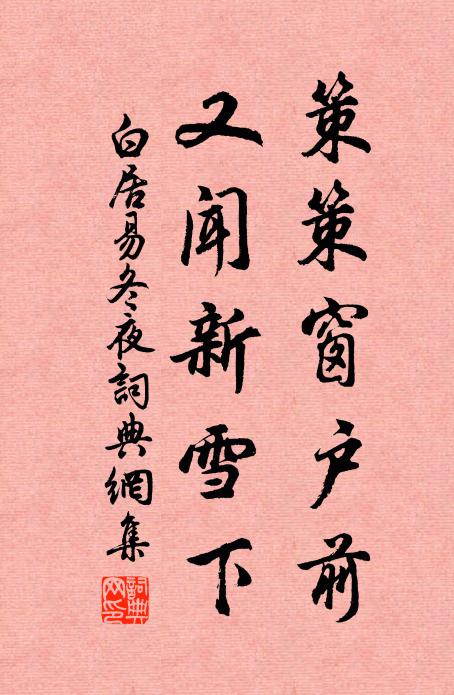 策策窗户前
又闻新雪下
白居易冬夜詞典網集
詞典網印